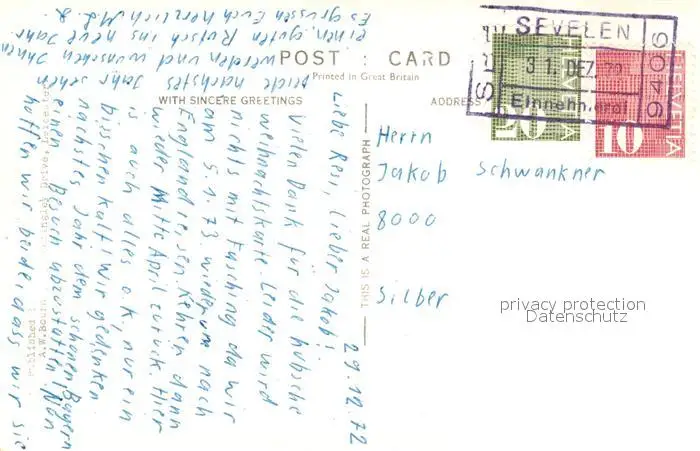 POST CARD
Printed in Great Britain
WITH SINCERE GREETINGS
ADDRESS
THIS IS A REAL PHOTOGRAPH
Published :
A.W.Bourn
Drive, Leicester
SEVELEN
31. DEZ. 72
Einnehmerei
9406
HELVETIA
20
HELVETIA
10
29.12.72
Liebe Resi, Lieber Jakob!
Vielen Dank für die hübsche
Weihnachtskarte. Leider wird
nichts mit Fasching da wir
am 5.1.73 wiederum nach
England reisen. Kehren dann
wieder Mitte April zurück. Hier
is auch alles o.k., nur ein
bisschen kalt! Wir gedenken
nächstes Jahr dem schönen Bayern
einen Besuch abzustatten. Nun
hoffen wir beide, dass wir sie
beide nächstes Jahr sehen
werden und wünschen Ihnen
einen guten Rutsch ins neue Jahr.
Es grüssen Euch herzlich
Herrn
Jakob Schwankner
8000
Silber
privacy protection
Datenschutz